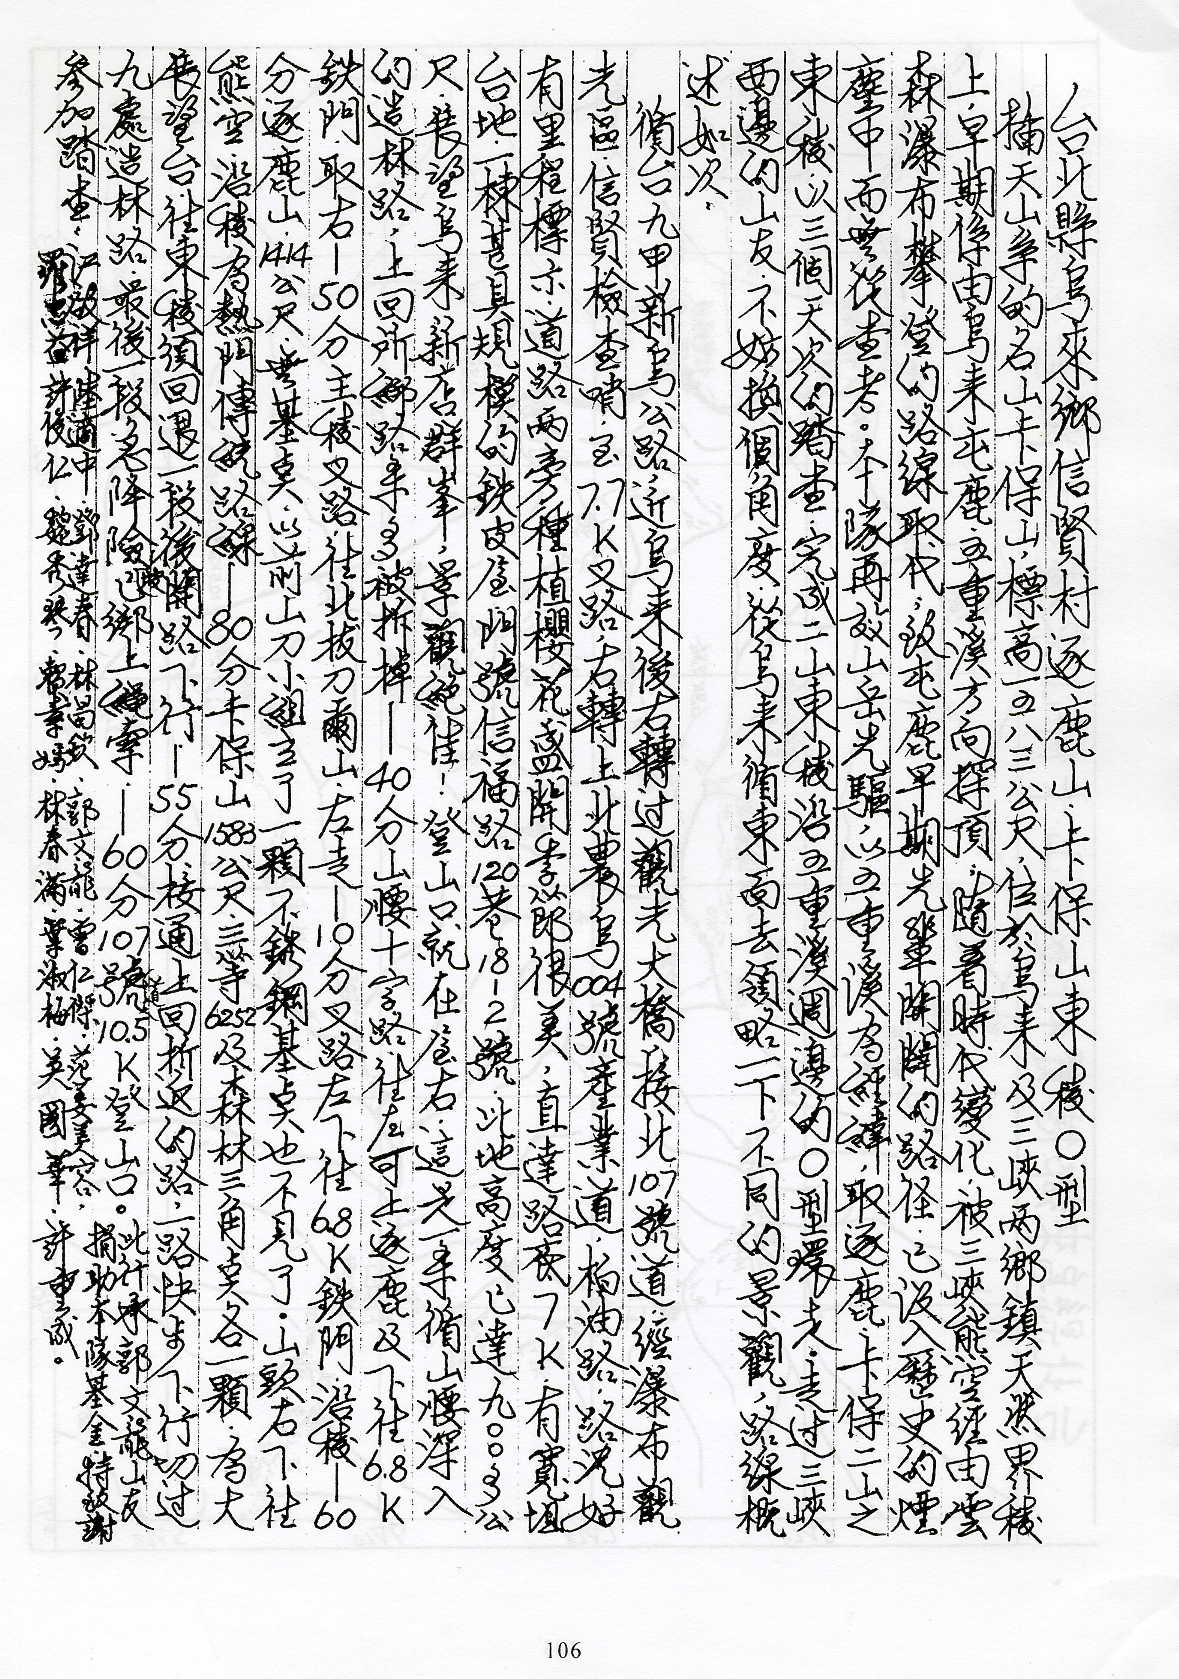 台北縣烏來鄉信賢村逐鹿山.卡保山東稜○型
插天山系的名山卡保山,標高一五八三公尺,位於烏来及三峽两鄉鎮天然界稜
上.早期係由烏来屯鹿.五重溪方向探頂,隨着時代變化,被三峽熊空經由雲
森瀑布攀登的路線取代,致屯鹿早期先輩開闢的路径.已没入歷史的煙
塵中而無從查考。本隊再效山岳先驅,以五重溪為經緯,取逐鹿.卡保二山之
東稜.以三個天次的踏查.完成二山東稜沿五重溪週邊的○型環走.走过三峽
西邊的山友.不妨換個角度.從烏来循東面去領略一下不同的景觀,路線概
述如次.
循台九甲新烏公路,近烏来後右轉过觀光大橋,接北107號道.經瀑布觀
光區.信賢檢查哨.至7.7K叉路,右轉上北農烏004號產業道.柏油路.路况好
有里程標示.道路两旁種植櫻花盛開季節很美,直達路底7K.有寬坦
台地.一棟甚具規模的鉄皮屋門號信福路120巷18-2號.此地高度已達九○○多公
尺.展望烏来.新店群峯,景觀絕佳!登山口就在屋右.這是一条循山腰深入
的造林路,上回所綁路条多被拆掉—40分山腰十字路.往左可上逐鹿及下往6.8K
鉄門.取右—50分主稜叉路.往北拔刀爾山.左走—10分叉路左下往6.8K鉄門.沿稜—60
分逐鹿山.1414公尺.無基点.以前山刀小組立了一顆不銹鋼基点也不見了.山頭右下往
熊空.沿稜為熱門傳統路線—80分卡保山1583公尺.三等6252及森林三角点各一顆.為大
展望台.往東稜須回退一段後開路下行—55分接通上回折返的路,一路快步下行切过
九處造林路.最後一段急降險處已綁上繩索.—60分107號道10.5K登山口。此行承郭文龍山友
捐助本隊基金.特致謝
参加踏查:江啟祥.陸適中.鄧達春.林昌欽.郭文龍.曾仁傑.范姜美容.
羅志益.許俊仁.魏秀琴.林春滿.葉淑梅.吳國華.許重成。
106